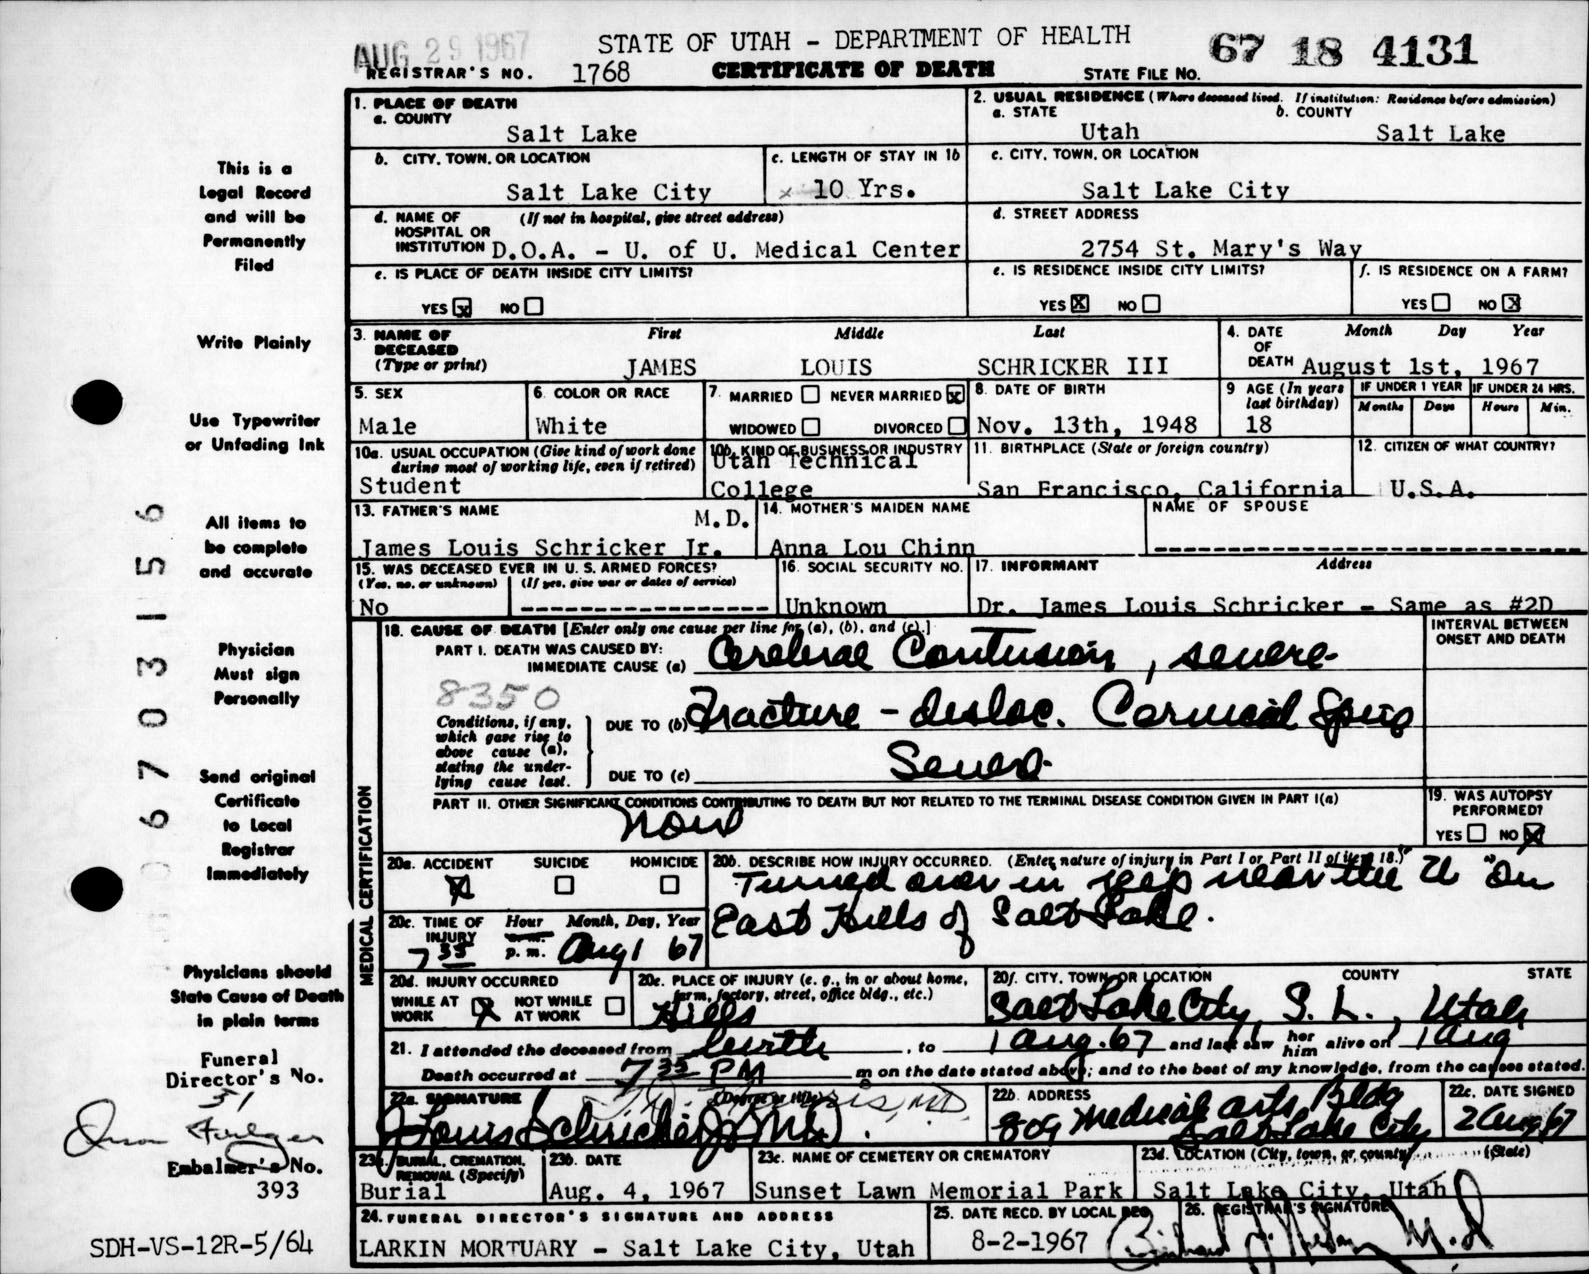 AUG 29 1967
STATE OF UTAH - DEPARTMENT OF HEALTH
67 18 4131
REGISTRAR'S NO. 1768 CERTIFICATE OF DEATH STATE FILE NO.
1. PLACE OF DEATH
a. COUNTY
Salt Lake
2. USUAL RESIDENCE (Where deceased lived. If institution: Residence before admission)
a. STATE b. COUNTY
Utah Salt Lake
b. CITY, TOWN, OR LOCATION
Salt Lake City
c. LENGTH OF STAY IN 1b
x 10 Yrs.
c. CITY, TOWN, OR LOCATION
Salt Lake City
d. NAME OF (If not in hospital, give street address)
HOSPITAL OR
INSTITUTION D.O.A. - U. of U. Medical Center
d. STREET ADDRESS
2754 St. Mary's Way
e. IS PLACE OF DEATH INSIDE CITY LIMITS?
YES x NO
e. IS RESIDENCE INSIDE CITY LIMITS?
YES X NO
f. IS RESIDENCE ON A FARM?
YES NO X
3. NAME OF First Middle Last
DECEASED
(Type or print) JAMES LOUIS SCHRICKER III
4. DATE Month Day Year
OF
DEATH August 1st, 1967
5. SEX
Male
6. COLOR OR RACE
White
7. MARRIED NEVER MARRIED X
WIDOWED DIVORCED
8. DATE OF BIRTH
Nov. 13th, 1948
9 AGE (In years
last birthday)
18
IF UNDER 1 YEAR IF UNDER 24 HRS.
Months Days Hours Min.
10a. USUAL OCCUPATION (Give kind of work done
during most of working life, even if retired)
Student
10b. KIND OF BUSINESS OR INDUSTRY
Utah Technical
College
11. BIRTHPLACE (State or foreign country)
San Francisco, California
12. CITIZEN OF WHAT COUNTRY?
U.S.A.
13. FATHER'S NAME
M.D.
James Louis Schricker Jr.
14. MOTHER'S MAIDEN NAME
Anna Lou Chinn
NAME OF SPOUSE
15. WAS DECEASED EVER IN U. S. ARMED FORCES?
(Yes, no, or unknown) (If yes, give war or dates of service)
No
16. SOCIAL SECURITY NO.
Unknown
17. INFORMANT Address
Dr. James Louis Schricker - Same as #2D
18. CAUSE OF DEATH [Enter only one cause per line for (a), (b), and (c).]
INTERVAL BETWEEN
ONSET AND DEATH
PART I. DEATH WAS CAUSED BY:
IMMEDIATE CAUSE (a) Cerebral Contusion, severe
8350
Conditions, if any,
which gave rise to
above cause (a),
stating the under-
lying cause last.
DUE TO (b) Fracture - disloc. Cervical Spine
DUE TO (c) Severe
PART II. OTHER SIGNIFICANT CONDITIONS CONTRIBUTING TO DEATH BUT NOT RELATED TO THE TERMINAL DISEASE CONDITION GIVEN IN PART I(a)
None
19. WAS AUTOPSY
PERFORMED?
YES NO X
MEDICAL CERTIFICATION
20a. ACCIDENT SUICIDE HOMICIDE
X
20b. DESCRIBE HOW INJURY OCCURRED. (Enter nature of injury in Part I or Part II of item 18.)
Turned over in jeep near the "U" on
East Hills of Salt Lake.
20c. TIME OF Hour Month, Day, Year
INJURY a.m.
7 35 p. m. Aug 1 67
20d. INJURY OCCURRED
WHILE AT WORK X NOT WHILE AT WORK
20e. PLACE OF INJURY (e. g., in or about home,
farm, factory, street, office bldg., etc.)
Hills
20f. CITY, TOWN, OR LOCATION COUNTY STATE
Salt Lake City, S. L., Utah
21. I attended the deceased from birth, to 1 Aug. 67 and last saw her him alive on 1 Aug
Death occurred at 7 35 PM m on the date stated above; and to the best of my knowledge, from the causes stated.
22a. SIGNATURE (Degree or title)
J Louis Schricker Jr MD.
22b. ADDRESS
809 Medical Arts Bldg
Salt Lake City
22c. DATE SIGNED
2 Aug 67
23a. BURIAL, CREMATION,
REMOVAL (Specify)
Burial
23b. DATE
Aug. 4, 1967
23c. NAME OF CEMETERY OR CREMATORY
Sunset Lawn Memorial Park
23d. LOCATION (City, town, or county) (State)
Salt Lake City, Utah
24. FUNERAL DIRECTOR'S SIGNATURE AND ADDRESS
LARKIN MORTUARY - Salt Lake City, Utah
25. DATE RECD. BY LOCAL REG
8-2-1967
26. REGISTRAR'S SIGNATURE
M.D
This is a
Legal Record
and will be
Permanently
Filed
Write Plainly
Use Typewriter
or Unfading Ink
All items to
be complete
and accurate
Physician
Must sign
Personally
Send original
Certificate
to Local
Registrar
Immediately
Physicians should
State Cause of Death
in plain terms
Funeral
Director's No.
51
Embalmer's No.
393
SDH-VS-12R-5/64
67031 56